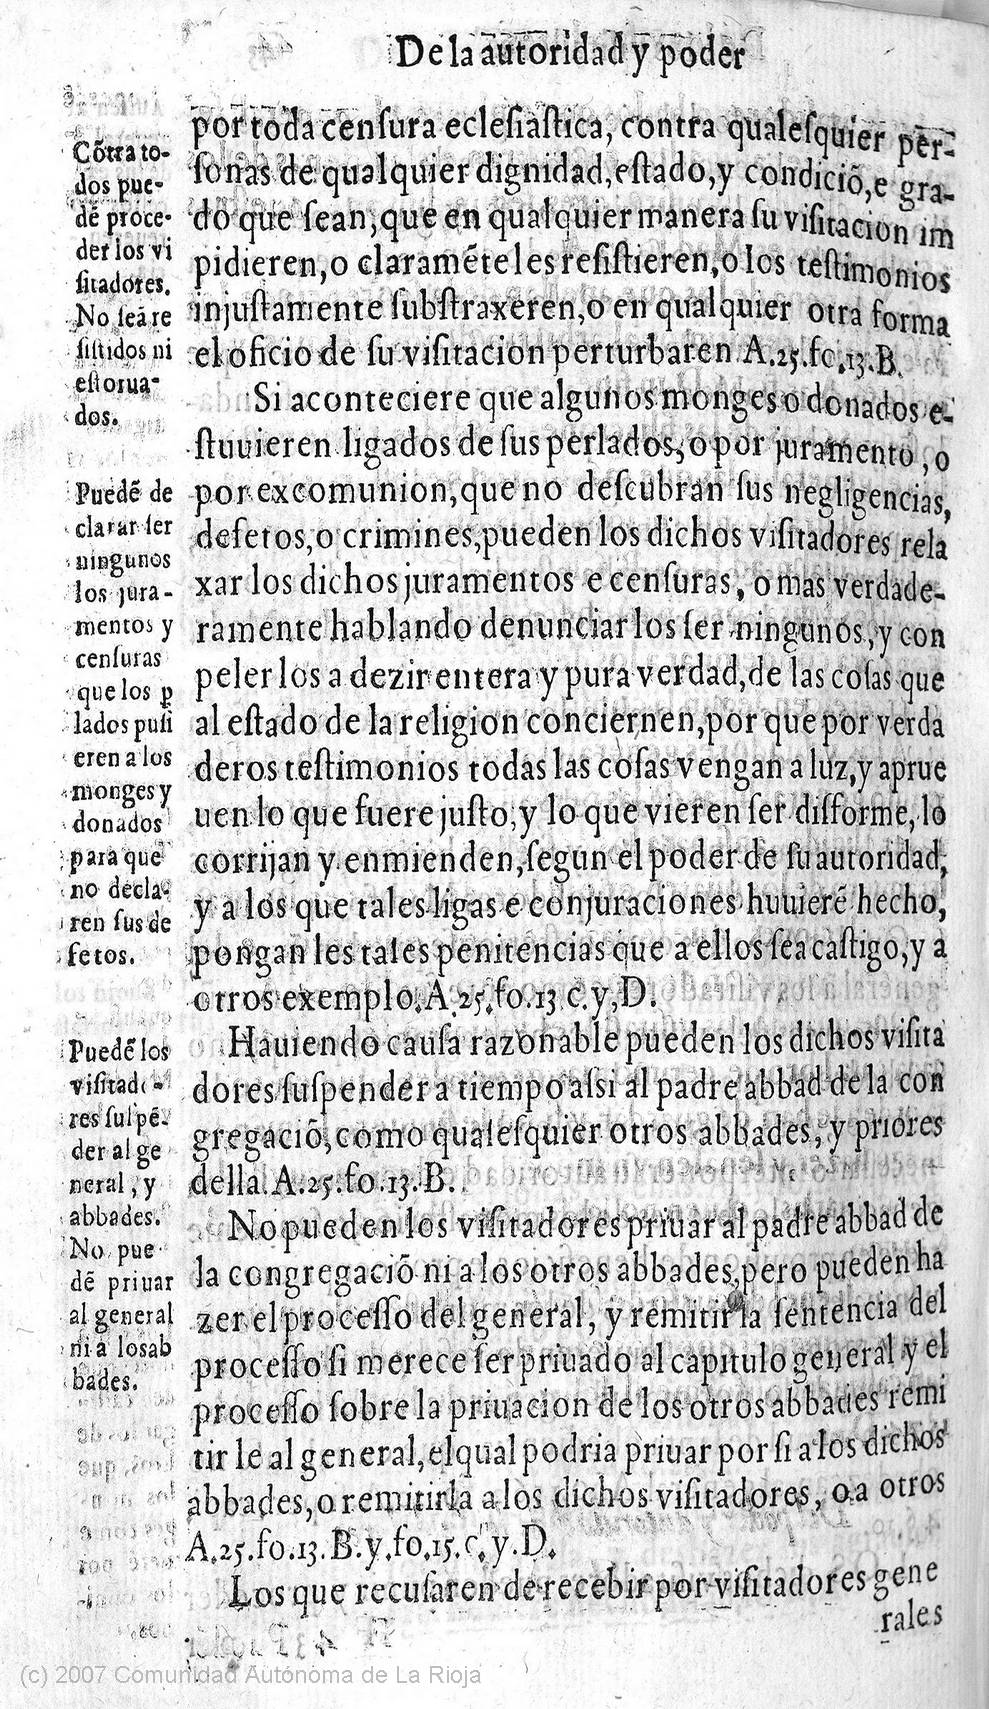 De la autoridad y poder
por toda censura eclesiastica, contra qualesquier per-
sonas de qualquier dignidad, estado, y condiciõ, e gra-
do que sean, que en qualquier manera su visitacion im
pidieren, o claramẽte les resistieren, o los testimonios
injustamente substraxeren, o en qualquier otra forma
el oficio de su visitacion perturbaren A.25.fo.13.B.
Si aconteciere que algunos monges o donados e-
stuuieren ligados de sus perlados, o por juramento, o
por excomunion, que no descubran sus negligencias,
defetos, o crimines, pueden los dichos visitadores rela
xar los dichos juramentos e censuras, o mas verdade-
ramente hablando denunciar los ser ningunos, y con
peler los a dezir entera y pura verdad, de las cosas que
al estado de la religion conciernen, por que por verda
deros testimonios todas las cosas vengan a luz, y aprue
uen lo que fuere justo, y lo que vieren ser disforme, lo
corrijan y enmienden, segun el poder de su autoridad,
y a los que tales ligas e conjuraciones huuierẽ hecho,
pongan les tales penitencias que a ellos sea castigo, y a
otros exemplo. A.25.fo.13 C.y,D.
Hauiendo causa razonable pueden los dichos visita
dores suspender a tiempo assi al padre abbad de la con
gregaciõ, como qualesquier otros abbades, y priores
della. A.25.fo.13.B.
No pueden los visitadores priuar al padre abbad de
la congregaciõ ni a los otros abbades, pero pueden ha
zer el processo del general, y remitir la sentencia del
processo si merece ser priuado al capitulo general y el
processo sobre la priuacion de los otros abbades remi
tir le al general, el qual podria priuar por si a los dichos
abbades, o remitirla a los dichos visitadores, o a otros
A.25.fo.13.B.y.fo.15.C.y.D.
Los que recusaren de recebir por visitadores gene
rales
Cõtra to-
dos pue-
dẽ proce-
der los vi
sitadores.
No seã re
sistidos ni
estorua-
dos.
Puedẽ de
clarar ser
ningunos
los jura-
mentos y
censuras
que los p
lados pusi
eren a los
monges y
donados
para que
no decla-
ren sus de
fetos.
Puedẽ los
visitado-
res suspẽ-
der al ge
neral, y
abbades.
No pue
dẽ priuar
al general
ni a los ab
bades.
(c) 2007 Comunidad Autónoma de La Rioja